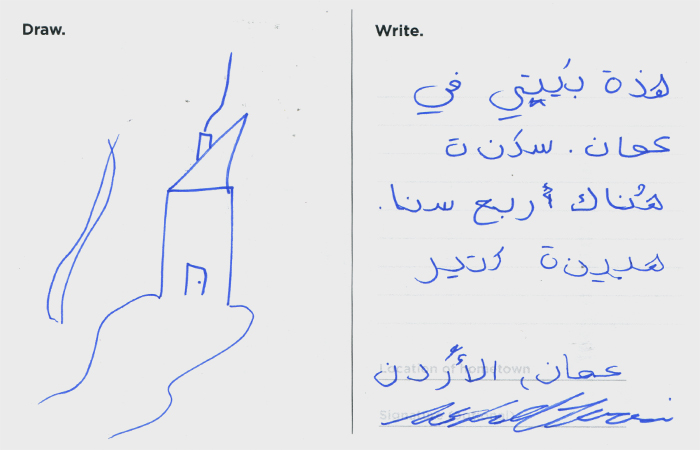 Draw.
Write.
هذة بَييتي في
عمان. سكن ت
هُناك أربع سنا.
هدينة كتير
Location of hometown
عمان، الأُردن